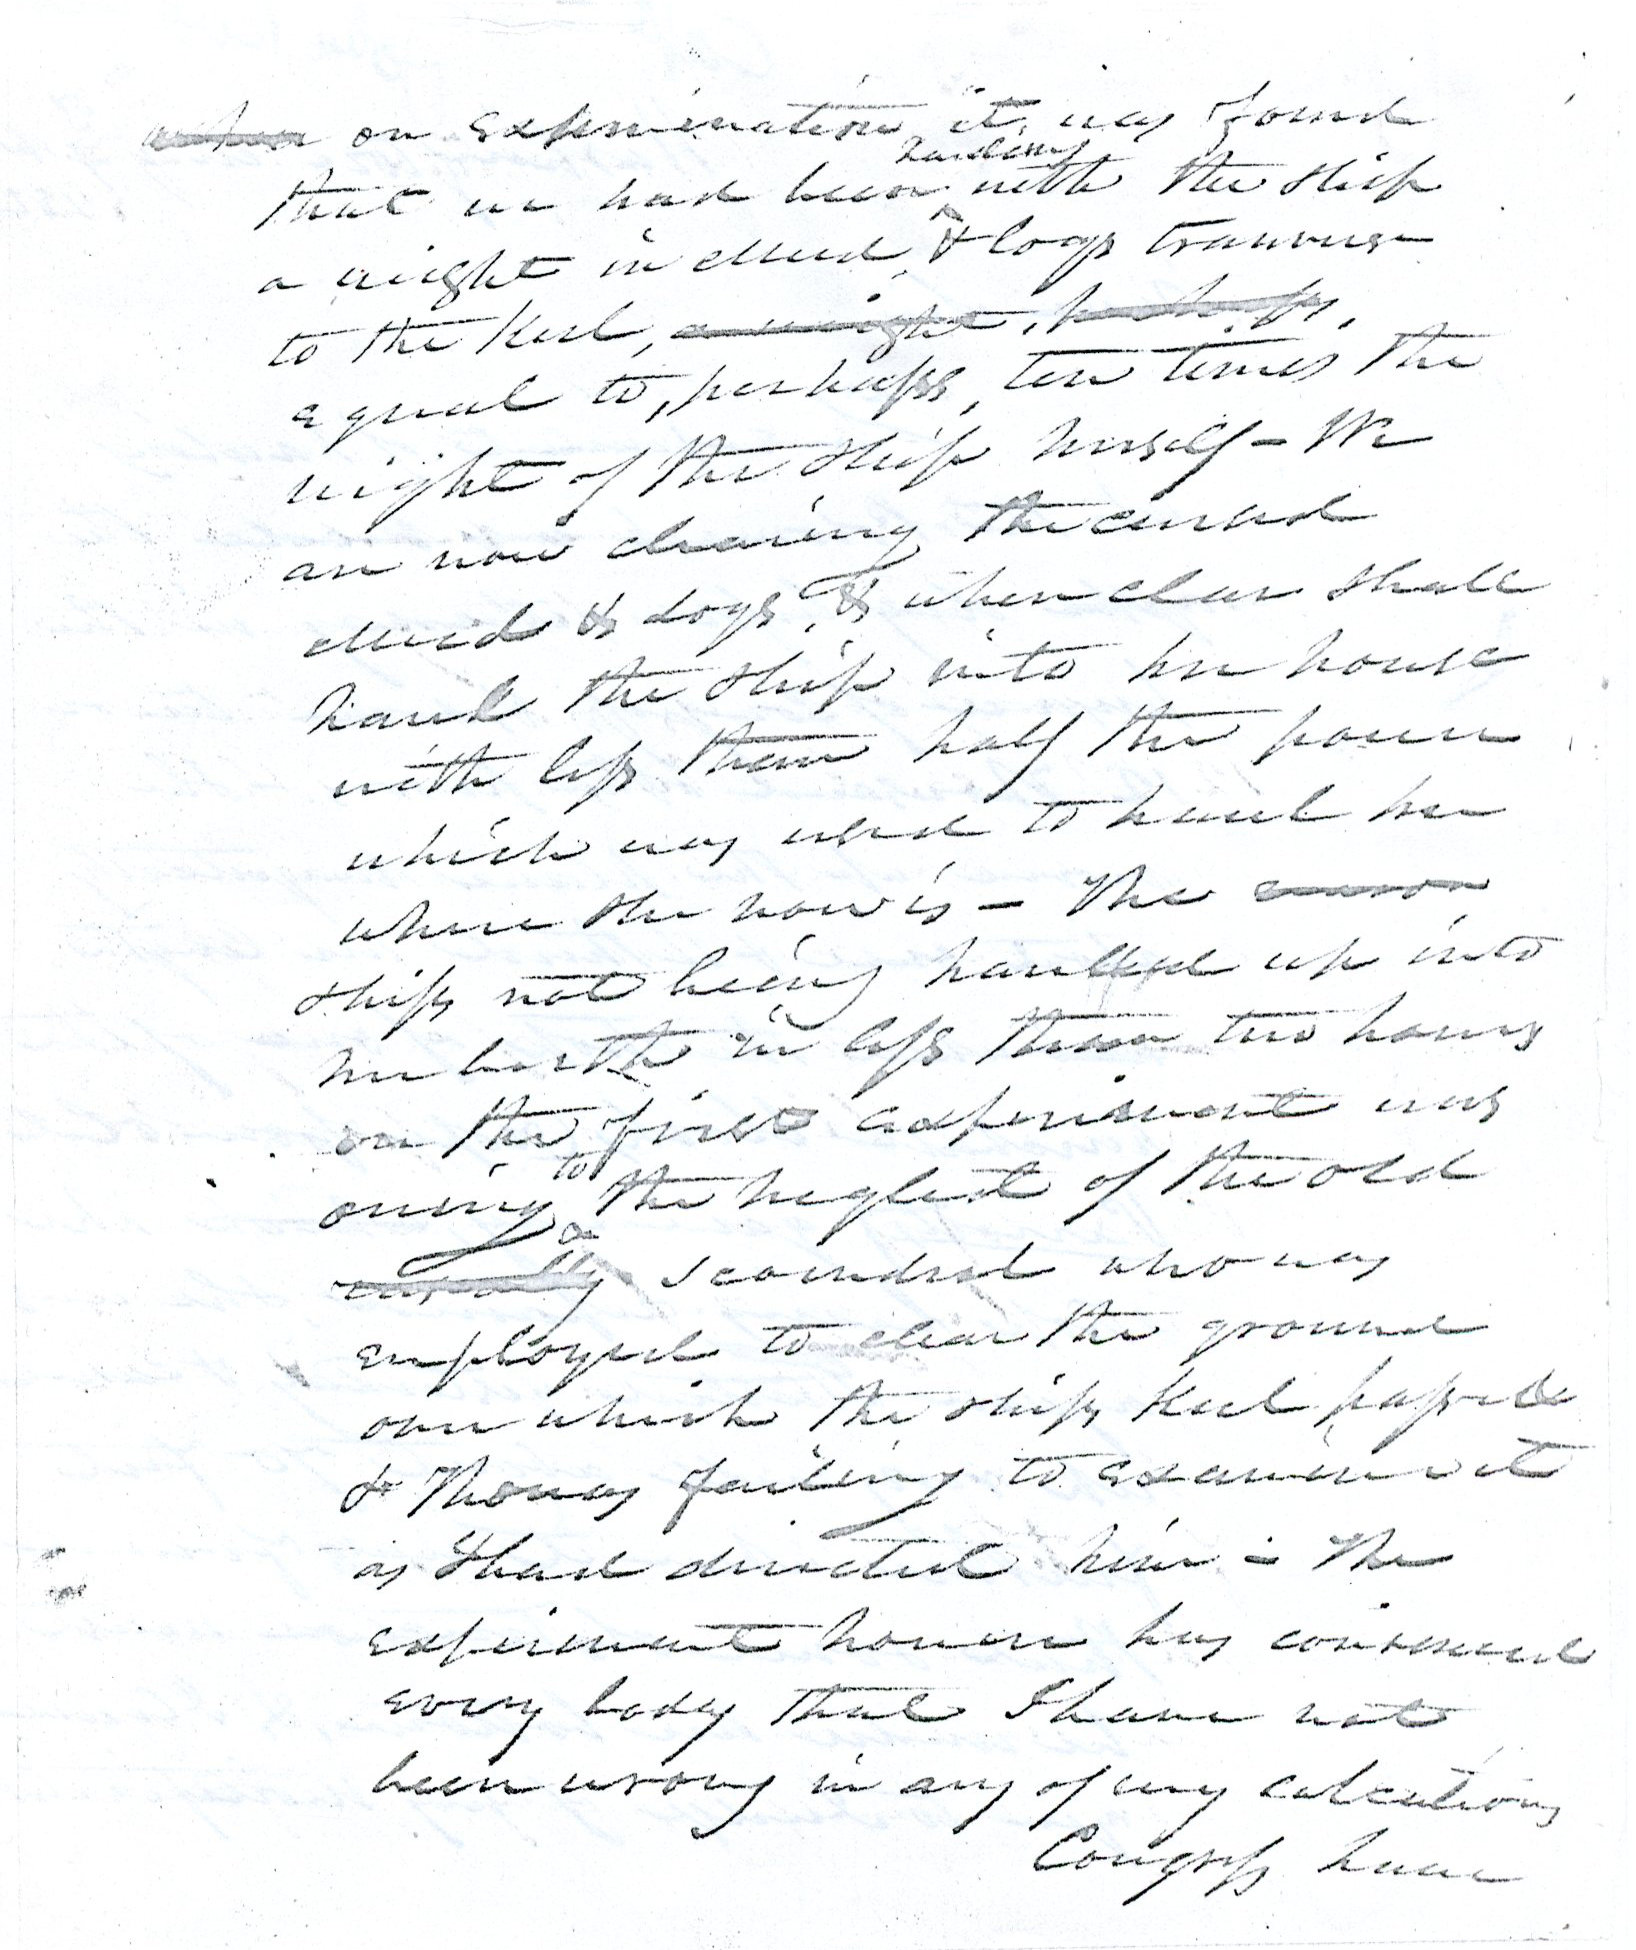 ~~when~~ on experimination it was found
that we had been hauling with the Ship
a weight in Mud & logs transverse
to the Keel, ~~a weight, perhaps,~~
equal to, perhaps, ten times the
weight of the Ship herself - We
are now clearing the cursed
Mud & Logs, & when clear shall
haul the Ship into her house
with less than half the power
which was used to haul her
where she now is - The ~~reason~~
Ships not being hauled up into
her berth in less than two hours
on the first experiment was
owing to the neglect of the old
a scoundrel who was
employed to clear the ground
over which the ships Keel passed
& Thomas failing to examine it
as I had directed him - The
experiment however has convinced
every body that I have not
been wrong in any of my calculations
Congress have